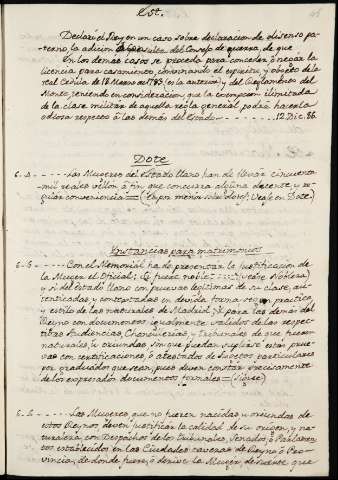 Est.
Declaró el Rey en un caso sobre declaracion de disenso pa-
terno, la adicion consulta del Consejo de guerra, de que
En los demas casos se proceda para conceder, ó negar la
licencia para casamiento, consonando el espiritu, y objeto de la
real Cedula de 18 Marzo de 1783, es la anterior, y del Reglamento del
Monte, teniendo en consideracion que la extension ilimitada
de la clase militar de aquella regla general podrá hacerla
odiosa respecto á las demas del Estado 12 Dic. 86.
Dote
Las Mugeres del Estado llano han de llevar cincuenta
mil reales vellon á fin que concurra alguna decente, y re-
gular conveniencia (Vease en Dote.)
Instancias para matrimonios
6-5 Con el Memorial ha de presentar la justificacion de
la Muger el Oficial; (Si fuere noble, vease Nobleza)
y si del estado llano con pruevas legitimas de su clase, au-
tenticadas y contestadas en devida forma segun practica
y estilo de las naturales de Madrid; y para las demas del
Reyno con documentos igualmente validos de las respec-
tivas Audiencias, Chancillerias, y Tribunales de que fueren
naturales, ú oriundas, sin que puedan suplirse esta prue-
vas con certificaciones, ó atestados de Sugetos particulares
por graduados que sean, pues deven constar precisamente
de los expresados documentos formales (Sigue)
6-6 Las Mugeres que no fueren nacidas ú oriundas de
estos Reynos deven justificar la calidad de su origen, y na-
turaleza con Despachos de los Tribunales, Senados, ó Parlamen-
tos establecidos en las Ciudades caveras de Reyno ó Pro-
vincia, de donde fuere, ó derive la Muger, de suerte que